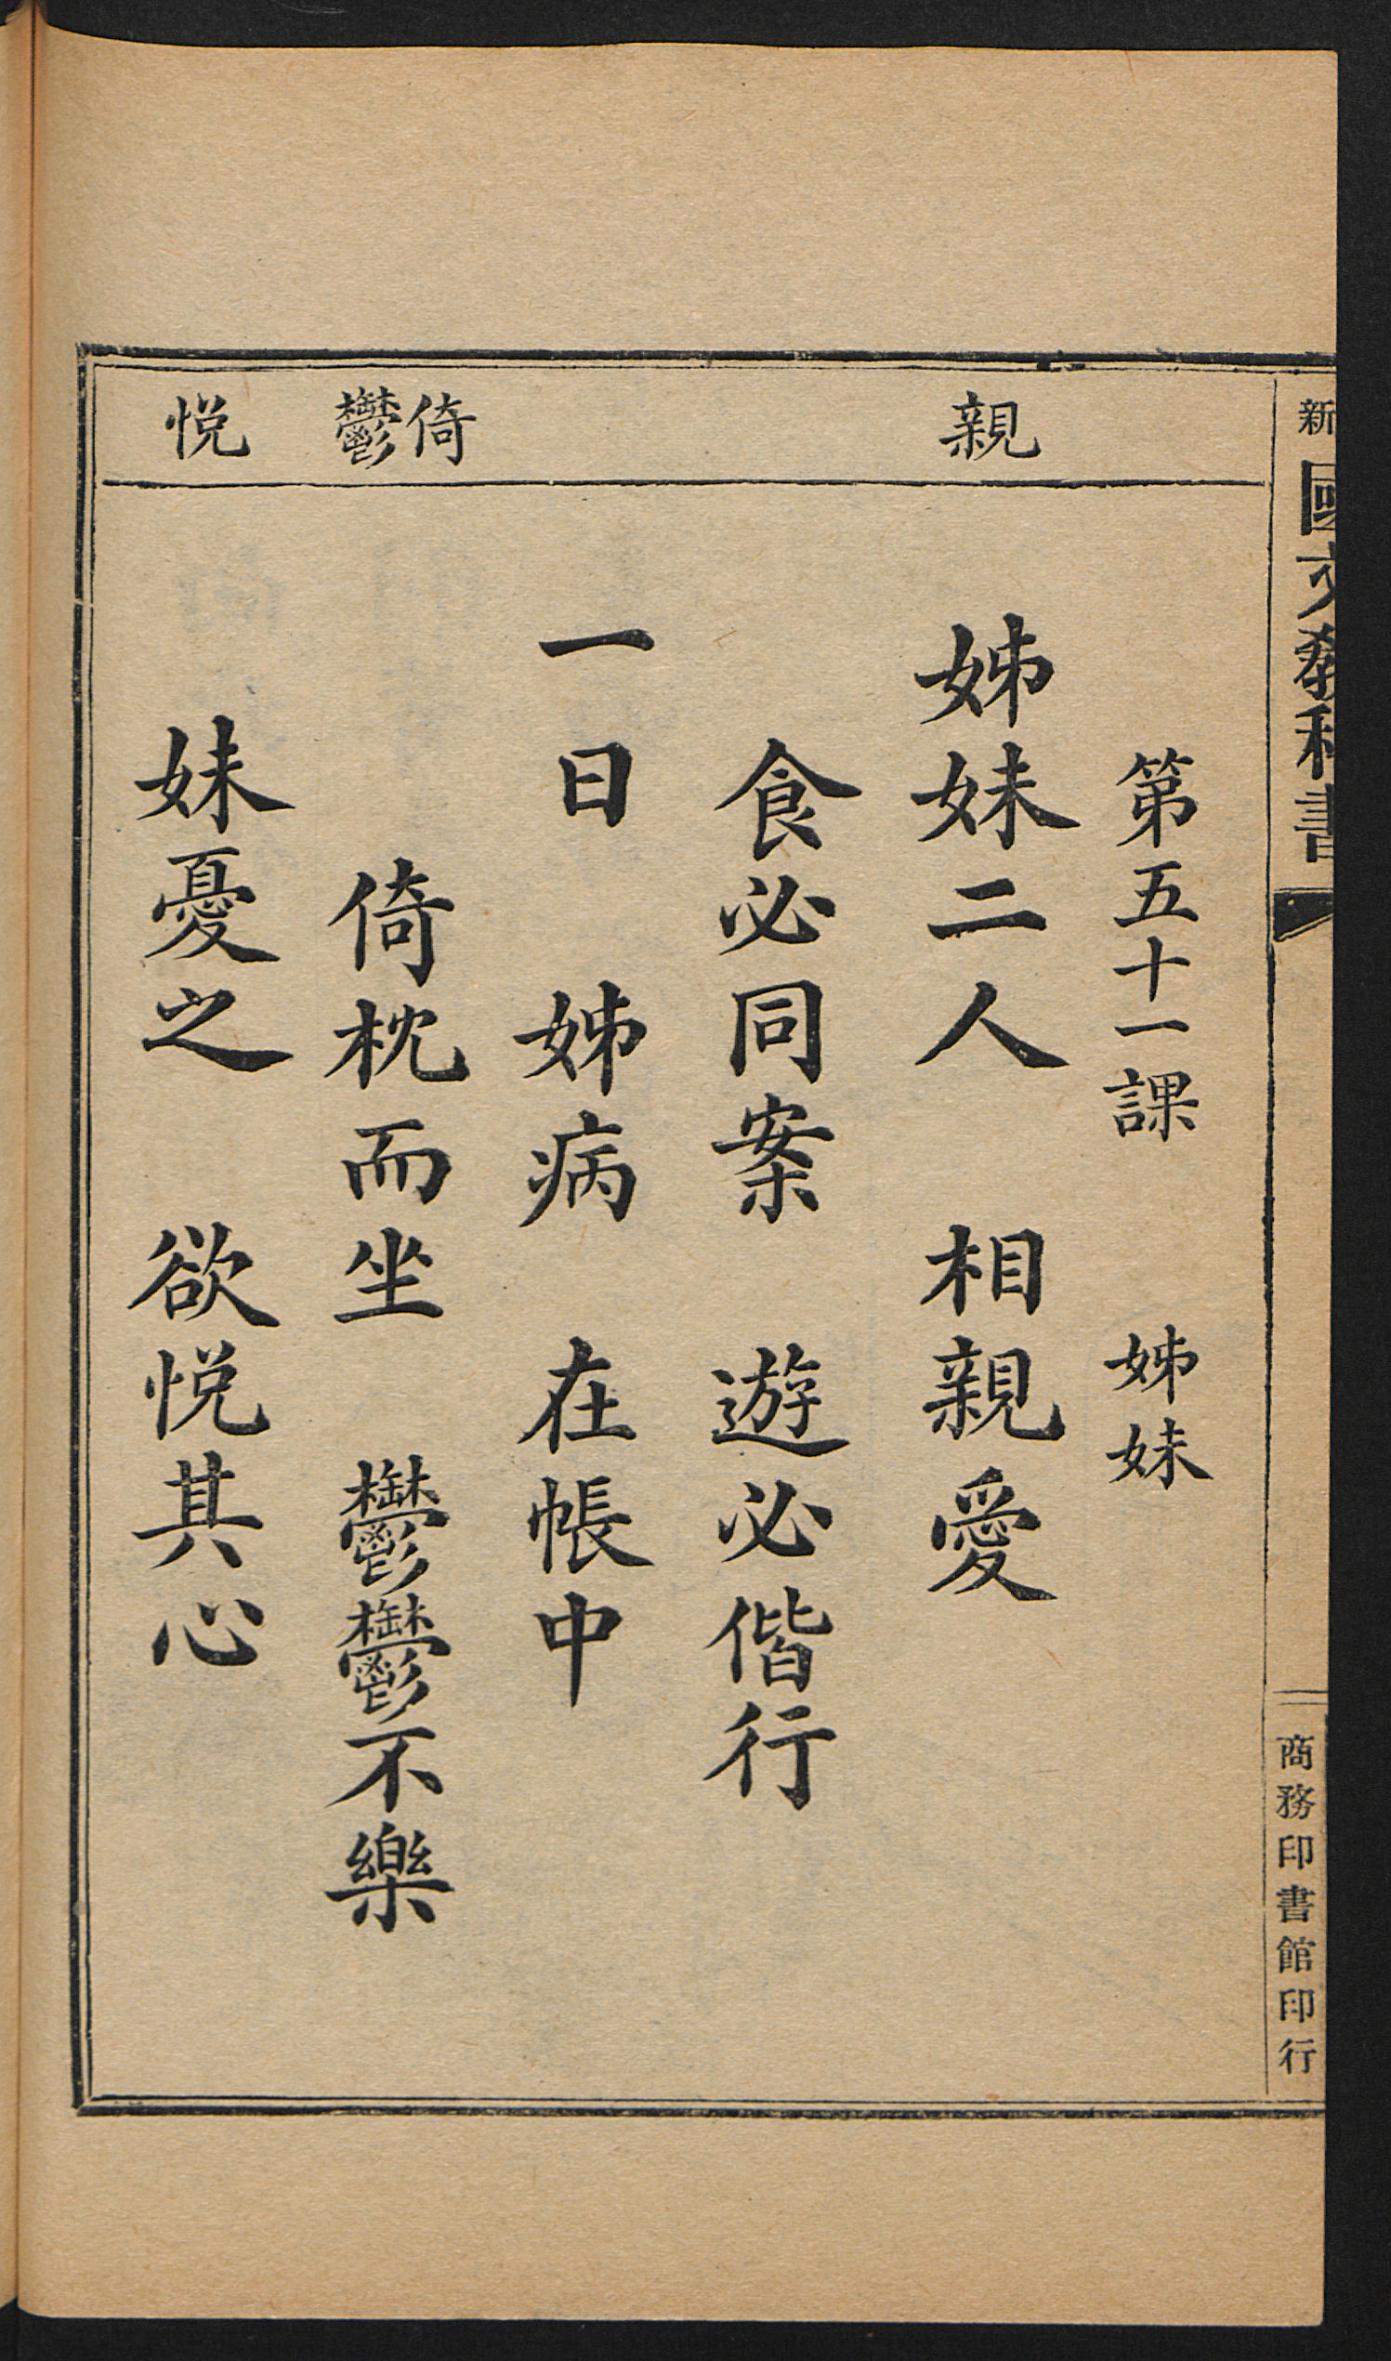 新國文教科書
商務印書館印行
第五十一課 姊妹
親
倚
鬱
悅
姊妹二人 相親愛
食必同案 遊必偕行
一日 姊病 在帳中
倚枕而坐 鬱鬱不樂
妹憂之 欲悅其心